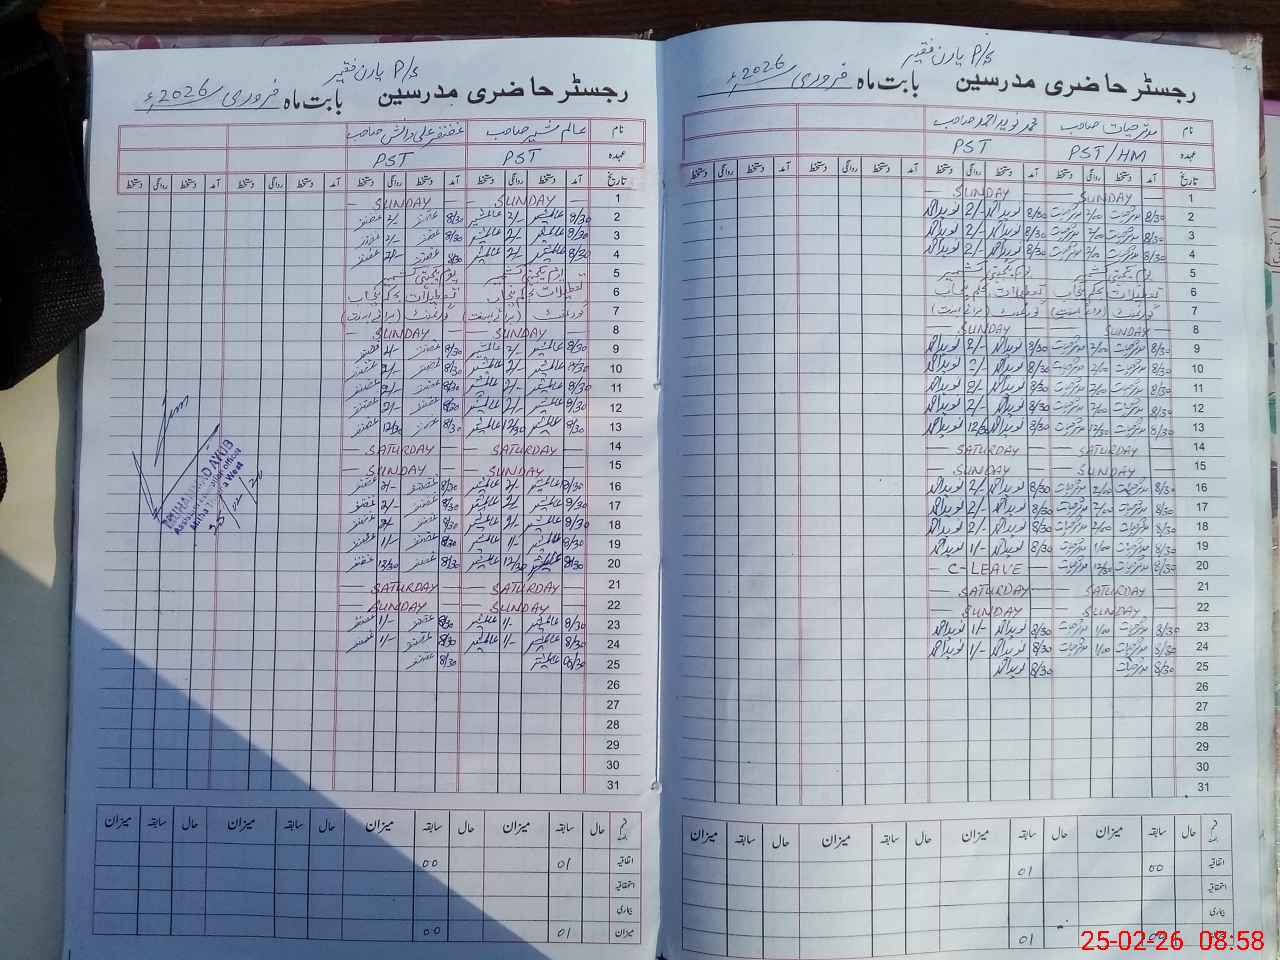 P/s پارن فقیر
رجسٹر حاضری مدرسین بابت ماہ فروری 2026ء
نام مدثر حیات صاحب محمد نوید احمد صاحب
عہدہ PST/HM PST
تاریخ آمد دستخط روانگی دستخط آمد دستخط روانگی دستخط آمد دستخط روانگی دستخط آمد دستخط روانگی دستخط
1 SUNDAY SUNDAY
2 8/30 2/00 8/30 نوید احمد 2/- نوید احمد
3 8/30 2/00 8/30 نوید احمد 2/- نوید احمد
4 8/30 2/00 8/30 نوید احمد 2/- نوید احمد
5 یوم یکجہتی کشمیر یوم یکجہتی کشمیر
6 تعطیلات بحکم پنجاب تعطیلات بحکم پنجاب
7 گورنمنٹ (برائے بسنت) گورنمنٹ (برائے بسنت)
8 SUNDAY SUNDAY
9 8/30 2/00 8/30 نوید احمد 2/- نوید احمد
10 8/30 2/00 8/30 نوید احمد 2/- نوید احمد
11 8/30 2/00 8/30 نوید احمد 2/- نوید احمد
12 8/30 2/00 8/30 نوید احمد 2/- نوید احمد
13 8/30 12/30 8/30 نوید احمد 12/30 نوید احمد
14 SATURDAY SATURDAY
15 SUNDAY SUNDAY
16 8/30 2/00 8/30 نوید احمد 2/- نوید احمد
17 8/30 2/00 8/30 نوید احمد 2/- نوید احمد
18 8/30 2/00 8/30 نوید احمد 2/- نوید احمد
19 8/30 1/00 8/30 نوید احمد 1/- نوید احمد
20 8/30 12/30 C-LEAVE
21 SATURDAY SATURDAY
22 SUNDAY SUNDAY
23 8/30 1/00 8/30 نوید احمد 1/- نوید احمد
24 8/30 1/00 8/30 نوید احمد 1/- نوید احمد
25 8/30 8/30 نوید احمد
26
27
28
29
30
31
حال سابقہ میزان حال سابقہ میزان حال سابقہ میزان حال سابقہ میزان
اتفاقیہ 00 01
استحقاقیہ
بیماری
01
P/s پارن فقیر
رجسٹر حاضری مدرسین بابت ماہ فروری 2026ء
نام عالم شیر صاحب غضنفر علی دانش صاحب
عہدہ PST PST
تاریخ آمد دستخط روانگی دستخط آمد دستخط روانگی دستخط آمد دستخط روانگی دستخط آمد دستخط روانگی دستخط
1 SUNDAY SUNDAY
2 8/30 عالم شیر 2/- عالم شیر 8/30 غضنفر 2/- غضنفر
3 8/30 عالم شیر 2/- عالم شیر 8/30 غضنفر 2/- غضنفر
4 8/30 عالم شیر 2/- عالم شیر 8/30 غضنفر 2/- غضنفر
5 یوم یکجہتی کشمیر یوم یکجہتی کشمیر
6 تعطیلات بحکم پنجاب تعطیلات بحکم پنجاب
7 گورنمنٹ (برائے بسنت) گورنمنٹ (برائے بسنت)
8 SUNDAY SUNDAY
9 8/30 عالم شیر 2/- عالم شیر 8/30 غضنفر 2/- غضنفر
10 8/30 عالم شیر 2/- عالم شیر 8/30 غضنفر 2/- غضنفر
11 8/30 عالم شیر 2/- عالم شیر 8/30 غضنفر 2/- غضنفر
12 8/30 عالم شیر 2/- عالم شیر 8/30 غضنفر 2/- غضنفر
13 8/30 عالم شیر 12/30 عالم شیر 8/30 غضنفر 12/30 غضنفر
14 SATURDAY SATURDAY
15 SUNDAY SUNDAY
16 8/30 عالم شیر 2/- عالم شیر 8/30 غضنفر 2/- غضنفر
17 8/30 عالم شیر 2/- عالم شیر 8/30 غضنفر 2/- غضنفر
18 8/30 عالم شیر 2/- عالم شیر 8/30 غضنفر 2/- غضنفر
19 8/30 عالم شیر 1/- عالم شیر 8/30 غضنفر 1/- غضنفر
20 8/30 عالم شیر 12/30 عالم شیر 8/30 غضنفر 12/30 غضنفر
21 SATURDAY SATURDAY
22 SUNDAY SUNDAY
23 8/30 عالم شیر 1/- عالم شیر 8/30 غضنفر 1/- غضنفر
24 8/30 عالم شیر 1/- عالم شیر 8/30 غضنفر 1/- غضنفر
25 08/30 عالم شیر 8/30 غضنفر
26
27
28
29
30
31
MUHAMMAD AYUB
حال سابقہ میزان حال سابقہ میزان حال سابقہ میزان حال سابقہ میزان
اتفاقیہ 01 00
استحقاقیہ
بیماری
میزان 01 00
25-02-26 08:58